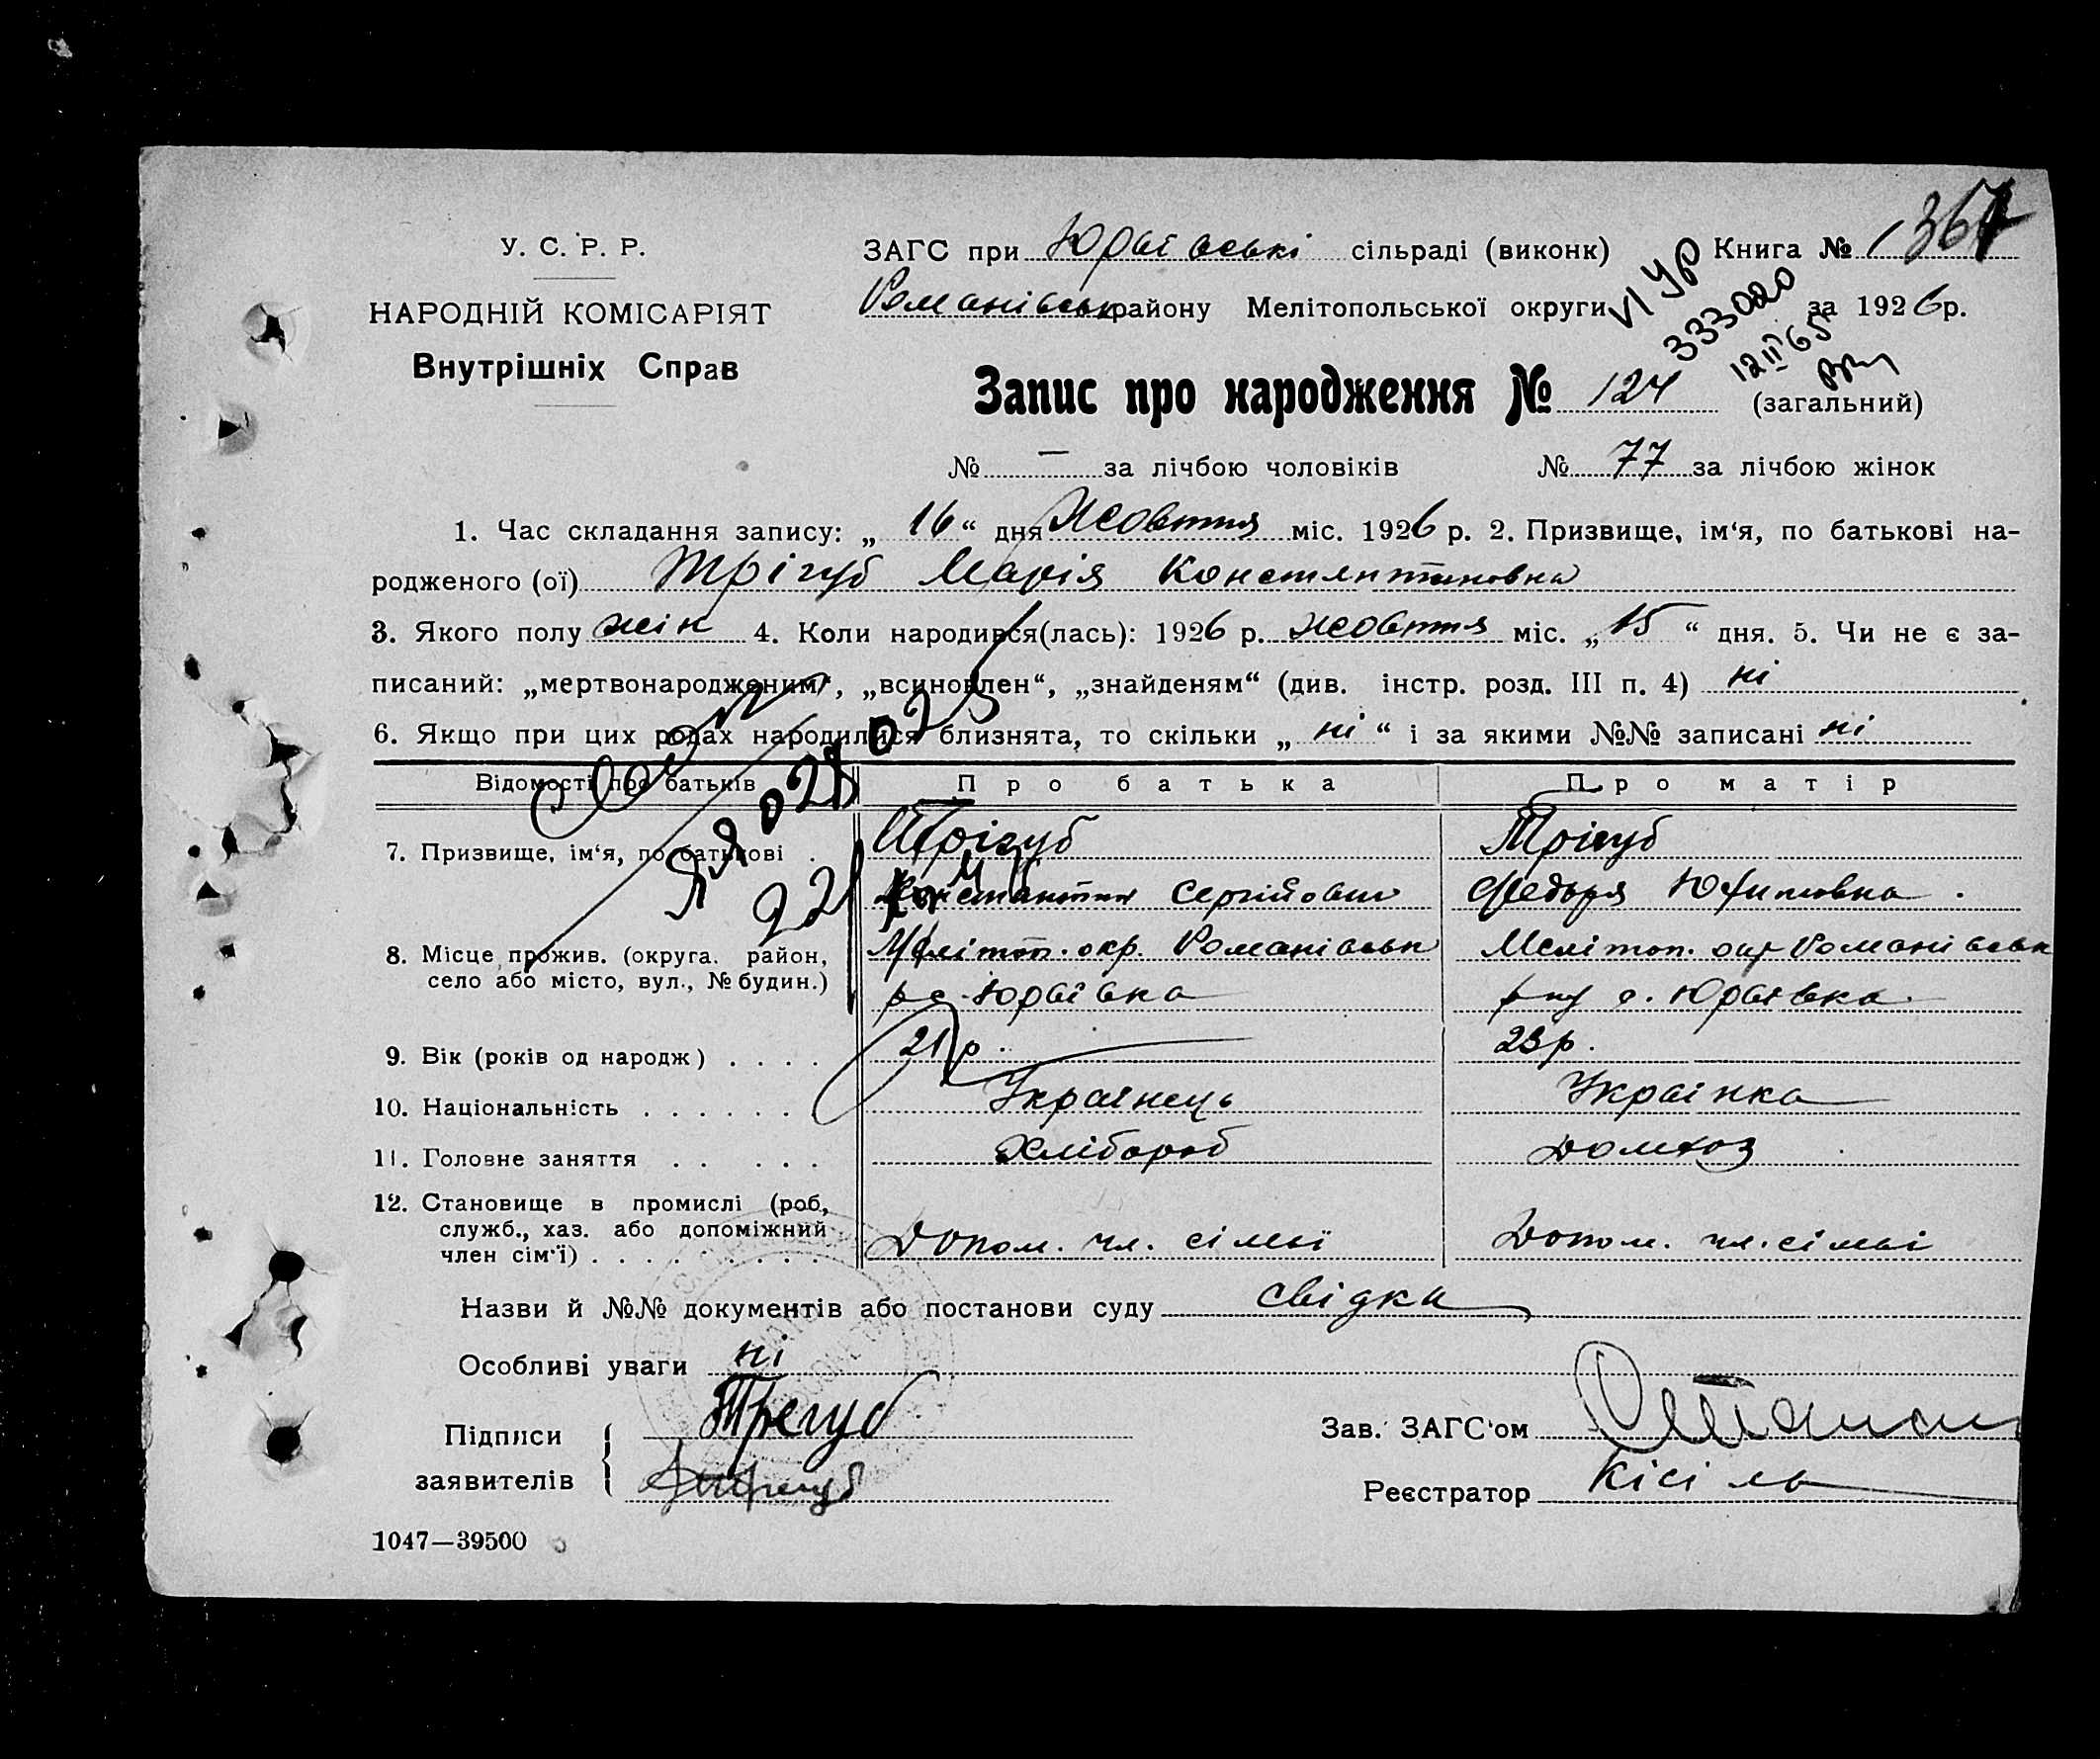 У. С. Р. Р.
НАРОДНІЙ КОМІСАРІЯТ
Внутрішніх Справ
ЗАГС при Юрвівські сільраді (виконк) Книга № 1 367
Романівськ району Мелітопольської округи за 1926 р.
VI УР
333020
12 II 65
Запис про народження № 124 (загальний)
№ — за лічбою чоловіків № 77 за лічбою жінок
1. Час складання запису: „ 16 “ дня Жовтня міс. 1926 р. 2. Призвище, ім‘я, по батькові на-
родженого (ої) Трігуб Марія Константиновна
3. Якого полу жін 4. Коли народився(лась): 1926 р. жовтня міс. „ 15 “ дня. 5. Чи не є за-
писаний: „мертвонародженим“, „всиновлен“, „знайденям“ (див. інстр. розд. III п. 4) ні
6. Якщо при цих родах народилися близнята, то скільки „ ні “ і за якими №№ записані ні
Відомості про батьків Про батька Про матір
7. Призвище, ім‘я, по батькові . Трігуб Трігуб
Константин Сергійович Федора Юхимовна
8. Місце прожив. (округа. район, Мелітоп. окр. Романівськ Мелітоп. окр Романівськ
село або місто, вул., № будин.) р с. Юрвівка с. Юрвівка
9. Вік (років од народж) . . . . 21 р. 23 р.
10. Національність . . . . . . Українець Українка
11. Головне заняття . . . . . Хлібороб Домхоз
12. Становище в промислі (роб,
служб., хаз. або допоміжний
член сім‘ї) . . . . . . . . Допом. чл. сімьї Допом. чл. сімьі
Назви й №№ документів або постанови суду свідки
Особливі уваги ні
Підписи Трегуб Зав. ЗАГС‘ом
заявителів Трегуб Реєстратор Кісіль
1047—39500